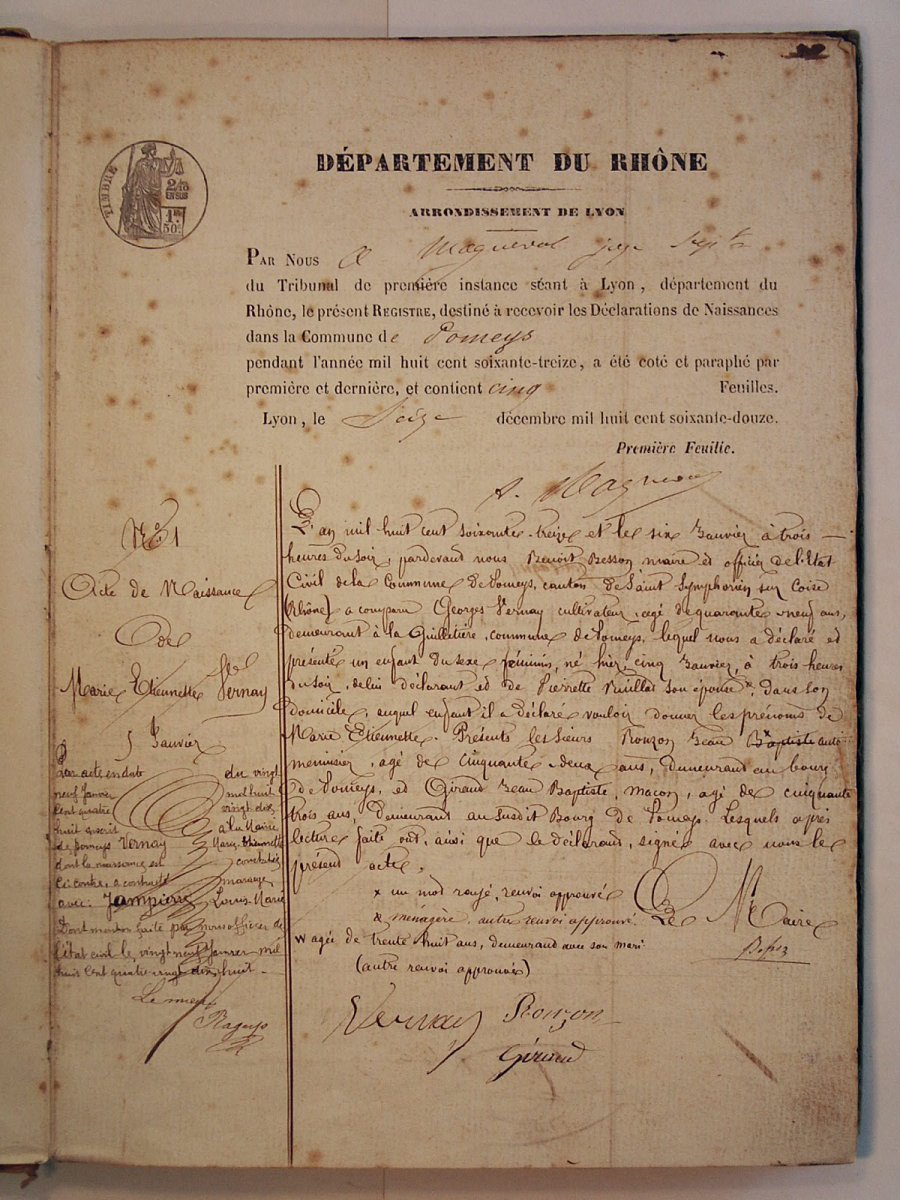 TIMBRE
2/10
EN SUS
1F
50C
DÉPARTEMENT DU RHÔNE
ARRONDISSEMENT DE LYON
PAR NOUS A Magneval juge
du Tribunal de première instance séant à Lyon, département du
Rhône, le présent REGISTRE, destiné à recevoir les Déclarations de Naissances
dans la Commune de Pomeys
pendant l'année mil huit cent soixante-treize, a été coté et paraphé par
première et dernière, et contient cinq Feuilles.
Lyon, le Seize décembre mil huit cent soixante-douze.
Première Feuille.
A. Magneval
No 1
Acte de Naissance
de
Marie Etiennette Vernay
5 Janvier
Par acte en date du vingt
neuf janvier mil huit
cent quatre vingt dix
huit inscrit à la Mairie
de Pomeys Vernay Marie Etiennette
dont la naissance est constatée
ci contre, a contracté mariage
avec Jampierre Louis Marie
Dont mention faite par nous officier de
l'état civil le vingt neuf janvier mil
huit cent quatre vingt dix huit.
Le maire
Rageys
L'an mil huit cent soixante-treize et le six Janvier à trois
heures du soir, pardevant nous Benoit Besson maire et officier de l'Etat
Civil de la Commune de Pomeys, canton de Saint Symphorien sur Coise
(Rhône) a comparu Georges Vernay cultivateur, agé de quarante neuf ans,
demeurant à la Guilletière, commune de Pomeys, lequel nous a déclaré et
présenté un enfant du sexe féminin, né hier, cinq Janvier, à trois heures
du soir, de lui déclarant et de Pierrette Ruillat son épouse, dans son
domicile, auquel enfant il a déclaré vouloir donner les prénoms de
Marie Etiennette. Présents les sieurs Ronzon Jean Baptiste
menuisier, agé de cinquante deux ans, demeurant au bourg
de Pomeys, et Giraud Jean Baptiste, macon, agé de cinquante
trois ans, demeurant au susdit Bourg de Pomeys. Lesquels après
lecture faite ont, ainsi que le déclarant, signé avec nous le
présent acte.
x un mot rayé, renvoi approuvé
& ménagère, autre renvoi approuvé. Le Maire
w agée de trente huit ans, demeurant avec son mari Besson
(autre renvoi approuvé)
Vernay Ronzon
Giraud